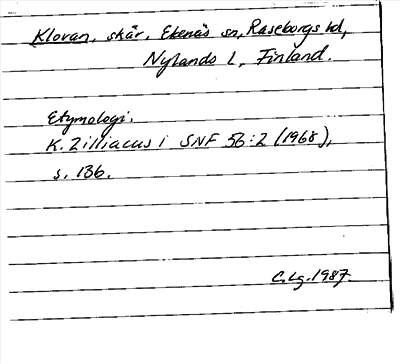 Klovan, skär, Ekenäs sn, Raseborgs hd,
Nylands l, Finland.
Etymologi.
K. Zilliacus i SNF 56:2 (1968),
s. 136.
C. Lg. 1987.